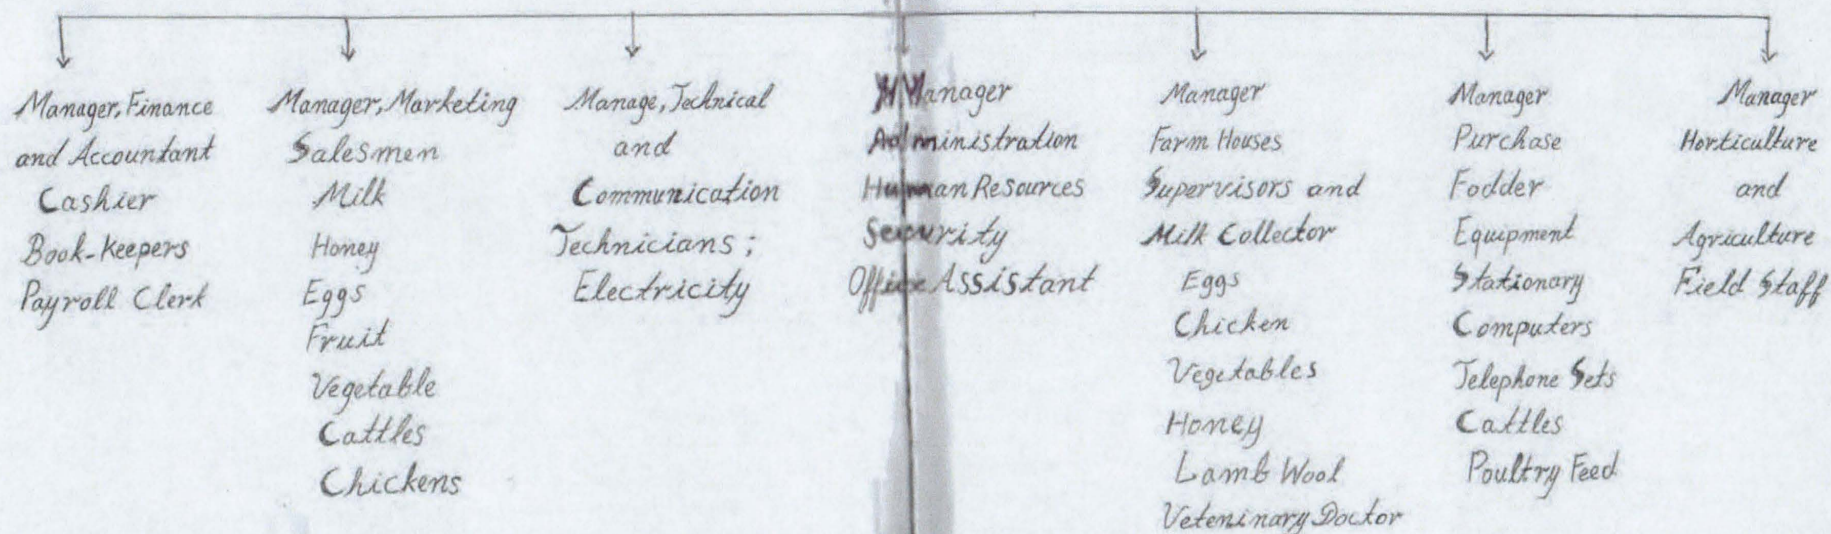 Manager, Finance
and Accountant
Cashier
Book-Keepers
Payroll Clerk
Manager, Marketing
Salesmen
Milk
Honey
Eggs
Fruit
Vegetable
Cattles
Chickens
Manage, Technical
and
Communication
Technicians;
Electricity
Manager
Administration
Human Resources
Security
Office Assistant
Manager
Farm Houses
Supervisors and
Milk Collector
Eggs
Chicken
Vegetables
Honey
Lamb Wool
Veteninary Doctor
Manager
Purchase
Fodder
Equipment
Stationary
Computers
Telephone Sets
Cattles
Poultry Feed
Manager
Horticulture
and
Agriculture
Field Staff